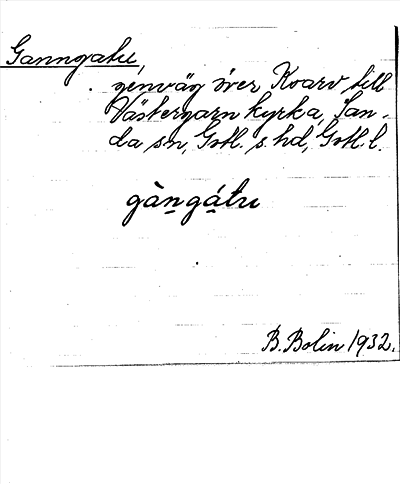 Ganngatu,
genväg över Kvarv till
Västergarn kyrka, San-
da sn, Gotl. s. hd, Gotl. l.
gàn̲gá̲tu
B. Bolin 1932.